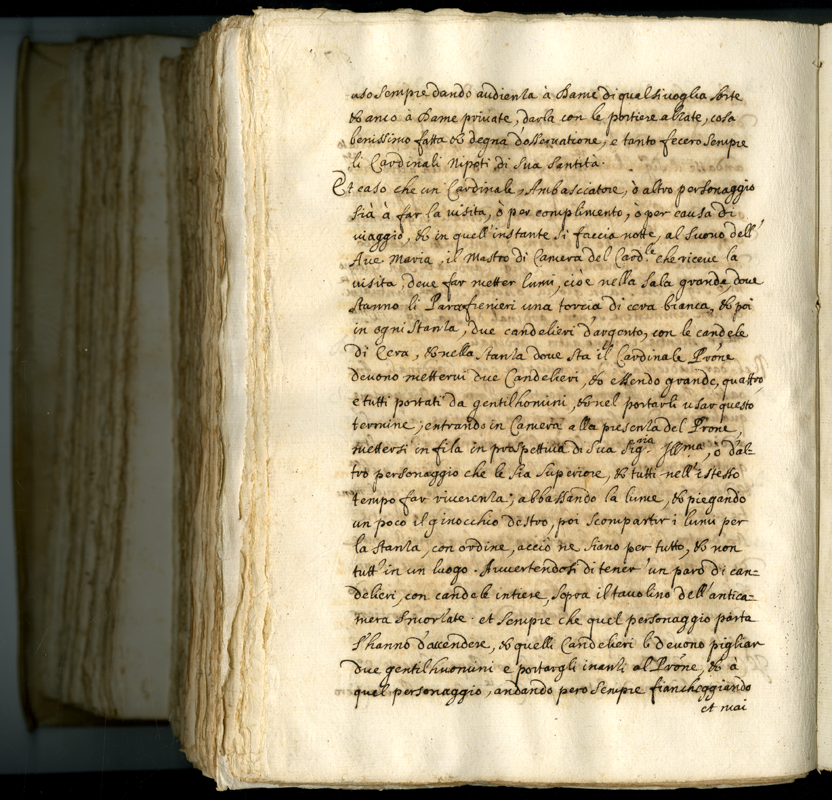 uso sempre dando audienza à Dame di qual si voglia sorte
& anco à Dame private, darla con le portiere alzate, cosa
benissimo fatta & degna d'osservatione, e tanto fecero sempre
li Cardinali Nipoti di Sua Santità.
Et caso che un Cardinale, Ambasciatore, ò altro personaggio
sià à far la visita, ò per complimento, ò per causa di
viaggio, & in quell'instante si faccia notte, al suono dell'
Ave Maria, il Mastro di Camera del Card.le che riceve la
visita, deve far metter lumi, cioè nella sala grande, dove
stanno li Parafrenieri una torcia di cera bianca, & poi
in ogni stanza, due candelieri d'argento, con le candele
di Cera, & nella stanza dove sta il Cardinale Prōne
devono mettervi due Candelieri, & essendo grande, quattro,
e tutti portati da gentilhomini, & nel portarli usar questo
termine, entrando in Camera alla presenza del Prōne,
mettersi in fila in prospettiva di Sua Sig.ria Ill.ma, ò d'al=
tro personaggio che le sia superiore, & tutti nell'istesso
tempo far riverenza; abbassando la lume, & piegando
un poco il ginocchio destro, poi scompartir i lumi per
la stanza, con ordine, acciò ne siano per tutto, & non
tutt'in un luogo. Avvertendosi di tener un paro di can=
delieri, con candele intiere, sopra il tavolino dell'antica=
mera smorzate. et sempre che quel personaggio parta
s'hanno d'accendere, & quelli Candelieri li devono pigliar
due gentilhuomini e portargli inanzi al Prōne, & à
quel personaggio, andando però sempre fiancheggiando
et mai